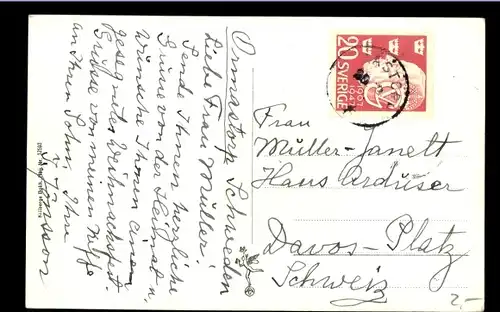 Ormastorp Schweden
Liebe Frau Müller!
Sende Ihnen herzliche
Grüsse von der Heimat u.
wünsche Ihnen einen
gesegnetes Weihnachtsfest.
Grüsse von meinen
an Ihren Sohn. Ihr
Jönsson
20
SVERIGE
1907
1947
Frau
Müller-Janett
Haus Ardüser
Davos-Platz
Schweiz
2.-